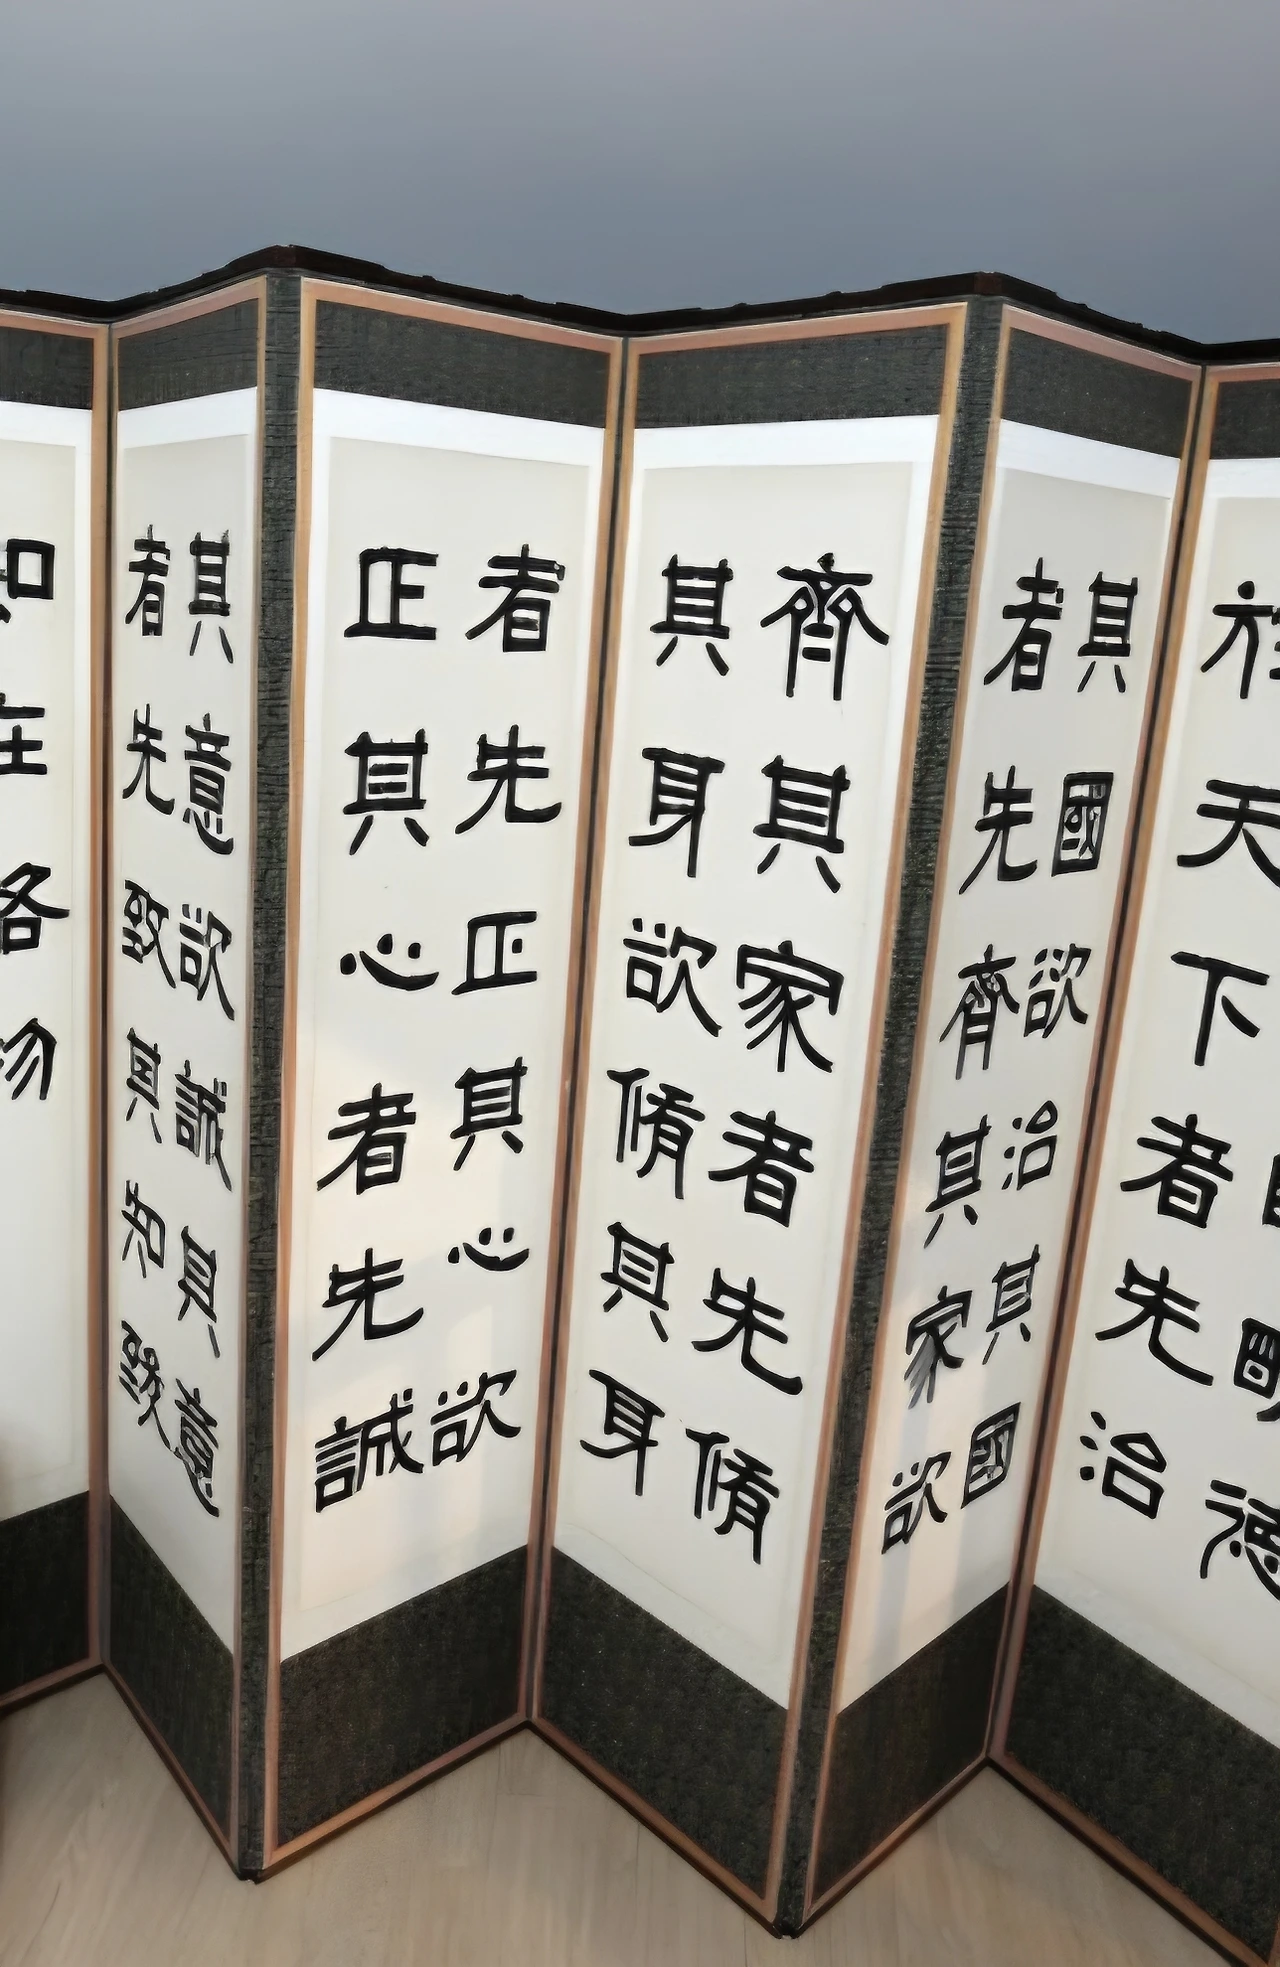 明德
於天下者先治
其國欲治其國
者先齊其家欲
齊其家者先脩
其身欲脩其身
者先正其心欲
正其心者先誠
其意欲誠其意
者先致其知致
知在格物